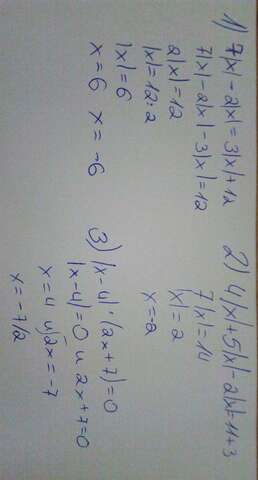 1) 7|x| - 2|x| = 3|x| + 12
7|x| - 2|x| - 3|x| = 12
2|x| = 12
|x| = 12:2
|x| = 6
x = 6 x = -6
2) 4|x| + 5|x| - 2|x| = 11 + 3
7|x| = 14
|x| = 2
x = -2
3) |x - 4| · (2x + 7) = 0
|x - 4| = 0 и 2x + 7 = 0
x = 4 и 2x = -7
x = -7/2